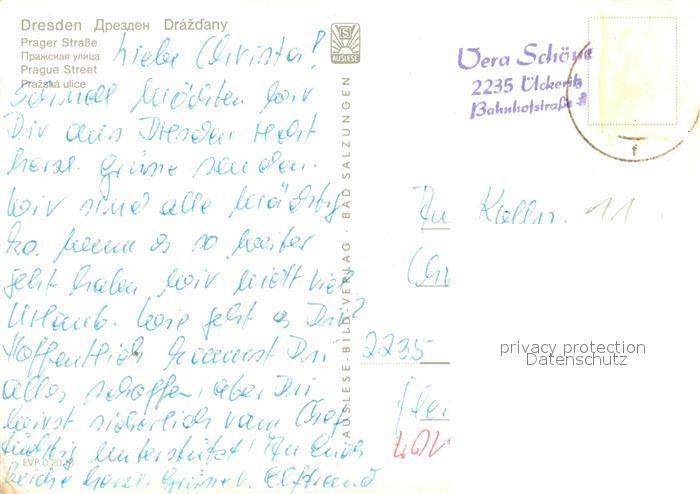 Dresden Дрезден Drážďany
Prager Straße
Пражская улица
Prague Street
Pražská ulice
Liebe Christa!
Schnell möchten wir
Dir aus Dresden recht
herzl. Grüße senden.
Wir sind alle mächtig
k.o. Wenn es so weiter
geht haben wir nicht viel
Urlaub. Wie geht es Dir?
Hoffentlich kommst Du
alles schaffen, aber Du
wirst sicherlich vom Chef
tüchtig unterstützt! An Euch
beide herzl. Grüße v.
EVP 0,20 M
AUSLESE
AUSLESE-BILD-VERLAG · BAD SALZUNGEN
Vera Schöne
2235 Ückeritz
Bahnhofstraße
An Kolln. 11.
2235
privacy protection
Datenschutz